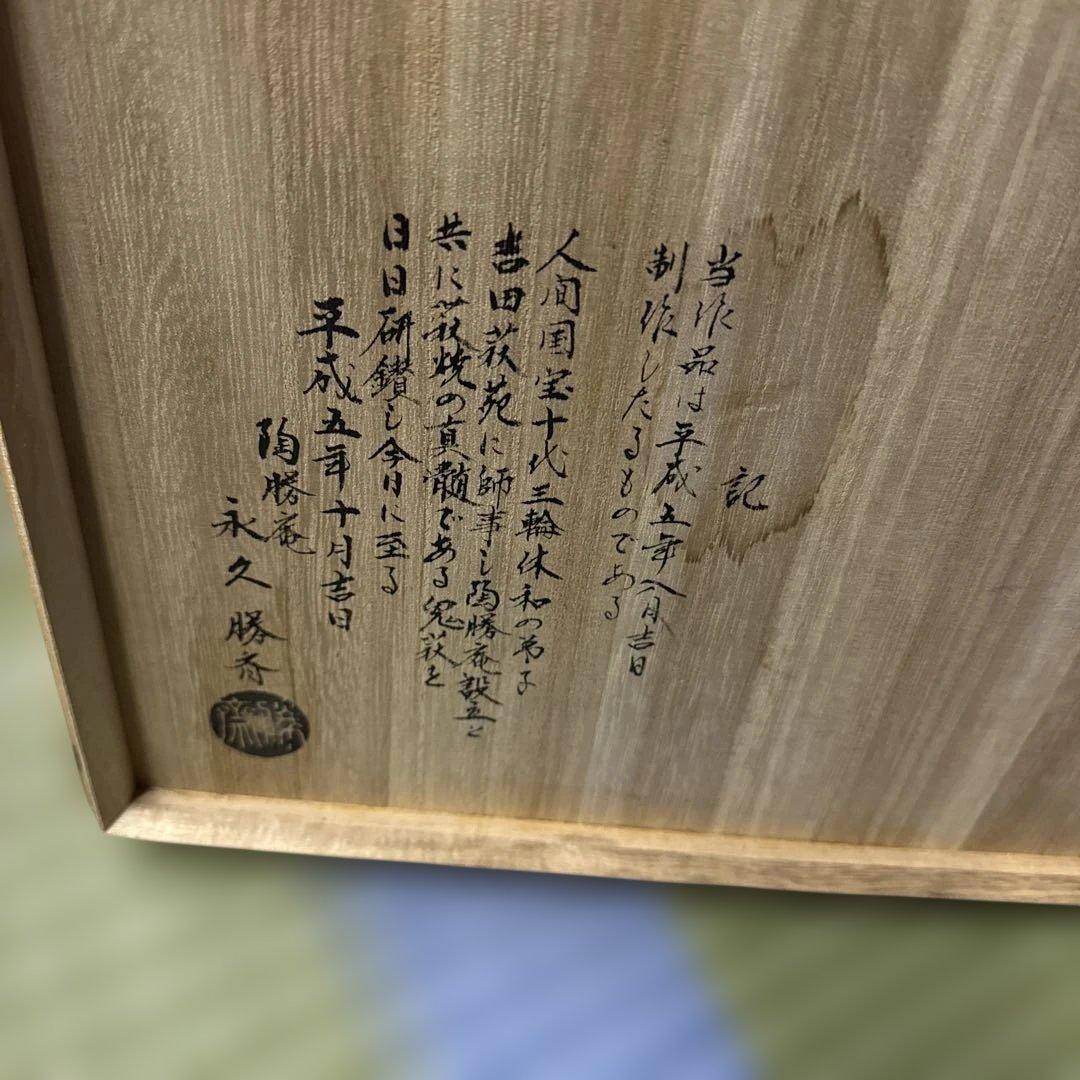 記
当作品は平成五年八月吉日
制作したるものである
人間国宝十代三輪休和の弟子
吉田萩苑に師事し陶勝庵設立と
共に萩焼の真髄である鬼萩を
日日研鑚し今日に至る
平成五年十月吉日
陶勝庵
永久勝斉